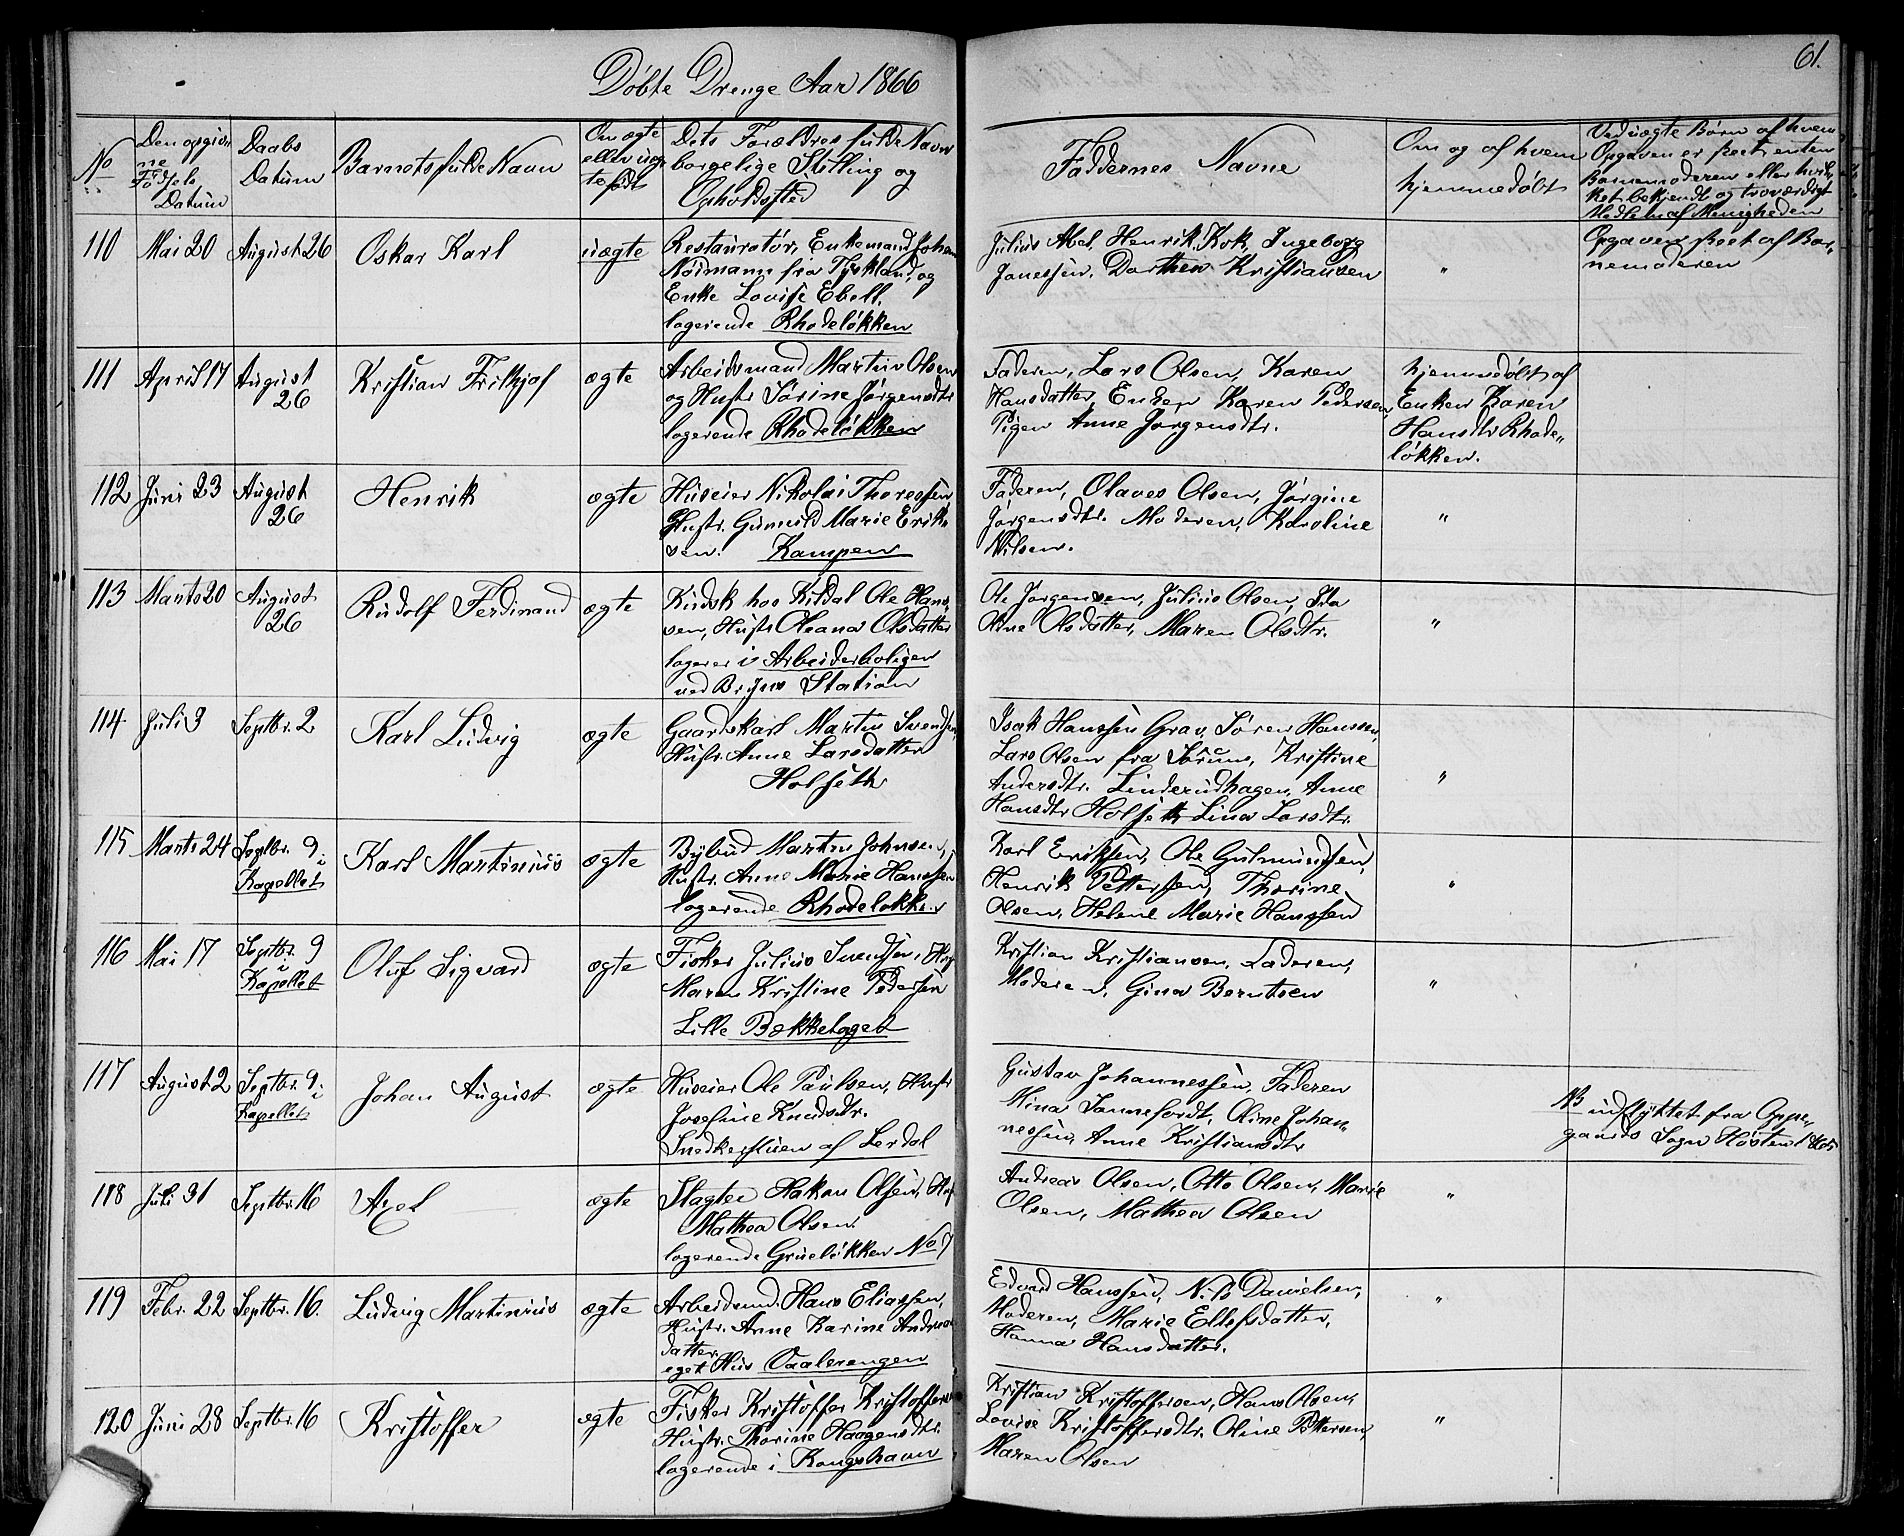 61.
Döbte Drenge Aar 1866
No
Den opgivne
Födsels
Datum
Daabs
Datum
Barnets fulde Navn
Om ægte
eller uæg-
te födt
Dets Forældres fulde Navn
borgelige Stilling og
Opholdssted
Faddernes Navne
Om og af hvem
hjemmedöbt
Ved uægte Börn af hvem
Opgaven er skeet enten
Barnemoderen eller hvil-
ket bekjendt og troværdigt
Medlem af Menigheden
110 Mai 20 August 26 Oskar Karl uægte
Restauratör, Enkemand Johan
Neimann fra Tyskland, og
Enke Lovise Ebell.
logerende Rhodelökken
Julius Abel, Henrik Kok, Ingeborg
Janessen, Dorthea Kristiansen
"
Opgaven skeet af Bar-
nemoderen
111 April 17 August
26
Kristian Frithjof ægte
Arbeidsmand Martin Olsen
og Hustr Sörine Jörgensdtr
logerende Rhodelökken
Faderen, Lars Olsen, Karen
Hansdatter, Enken Karen Pedersen,
Pigen Anne Jörgensdtr.
hjemmedöbt af
Enken Karen
Hansdtr Rhode-
lökken.
112 Juni 23 August
26
Henrik ægte
Huseier Nikolai Thoressen
Hustr. Gunnild Marie Erik-
sen. Kampen
Faderen, Olaves Olsen, Jörgine
Jörgensdtr. Moderen, Karoline
Nilsen.
"
113 Marts 20 August
26
Rudolf Ferdinand ægte
Kudsk hos Kildal Ole Han-
sen, Hustr Oleana Olsdatter
logerer i Arbeiderboligen
ved Bryns Station
Ole Jörgensen, Julius Olsen, Ida
Oline Olsdatter, Maren Olsdtr.
"
114 Juli 3 Septbr. 2 Karl Ludvig ægte
Gaardskarl Martin Svendsen
Hustr. Anne Larsdatter
Holseth
Isak Hanssen Grav, Sören Hanssen,
Lars Olsen fra Sörum, Kristine
Andersdtr. Linderudhagen, Anne
Hansdtr Holseth, Lina Larsdtr.
"
115 Marts 24 Septbr. 9 i
Kapellet
Karl Martinius ægte
Bybud Martin Johnsen,
Hustr. Anne Marie Hanssen
logerende Rhodelökken
Karl Eriksen, Ole Gulmundsen,
Henrik Pettersen, Thorine
Olsen, Helene Marie Hanssen
"
116 Mai 17 Septbr. 9
i
Kapellet
Oluf Sigvard ægte
Fisker Julius Svendsen, Hust
Maren Kristine Pedersen
Lille Bækkelaget
Kristian Kristiansen, Faderen,
Moderen, Gina Berntsen
"
117 August 2 Septbr. 9 i
Kapellet
Johan August ægte
Huseier Ole Paulsen, Hustr
Josefine Knudsdtr.
Snedkerstuen af Lerdal
Gustav Johannessen, Faderen
Mina Sannefordt, Oline Johan-
nessen, Anne Kristiansdtr
NB indflyttet fra Oppe-
gaards Sogn Hösten 1865
118 Juli 31 Septbr. 16 Axel ægte
Slagter Hakon Olsen, Hust
Mathea Olsen.
logerende Gruelökken No 7
Andreas Olsen, Otto Olsen, Marie
Olsen, Mathea Olsen
"
119 Febr. 22 Septbr. 16. Ludvig Martinius ægte
Arbeidsmd. Hans Eliassen,
Hustr. Anne Karine Andreas
datter.
eget Hus Vaalerengen
Edvard Hanssen, Nils Danielsen,
Moderen, Marie Ellefsdatter,
Hanna Hansdatter.
"
120 Juni 28 Septbr. 16 Kristoffer ægte
Fisker Kristoffer Kristoffersen
Hustr. Thorine Haagensdtr.
logerende i Kongshavn
Kristian Kristoffersen, Hans Olsen,
Lovise Kristoffersdtr. Oline Pettersen,
Maren Olsen
"